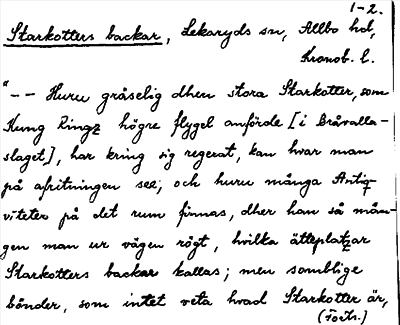 1-2.
Starkotters backar, Lekaryds sn, Allbo hd,
Kronob. l.
"-- Huru gräselig dhen stora Starkotter, som
Kung Ringz högre flygel anförde [i Bråvalla-
slaget], har kring sig regerat, kan hvar man
på afritningen see; och huru många Antiq-
viteter på det rum finnas, dher han så mån-
gen man ur vägen rögt, hvilka ätteplatzar
Starkotters backar kallas; men somblige
bönder, som intet veta hvad Starkotter är,
(Forts.)